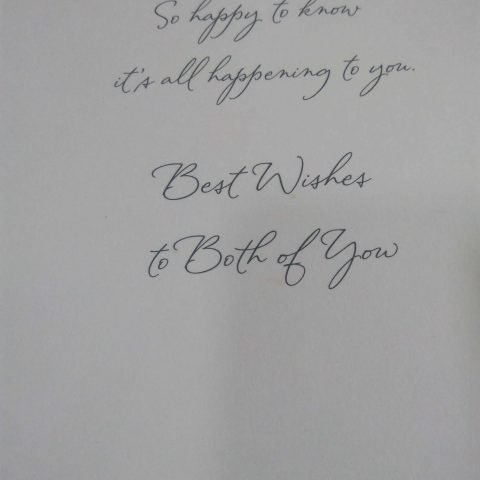 So happy to know
it's all happening to you.
Best Wishes
to Both of You